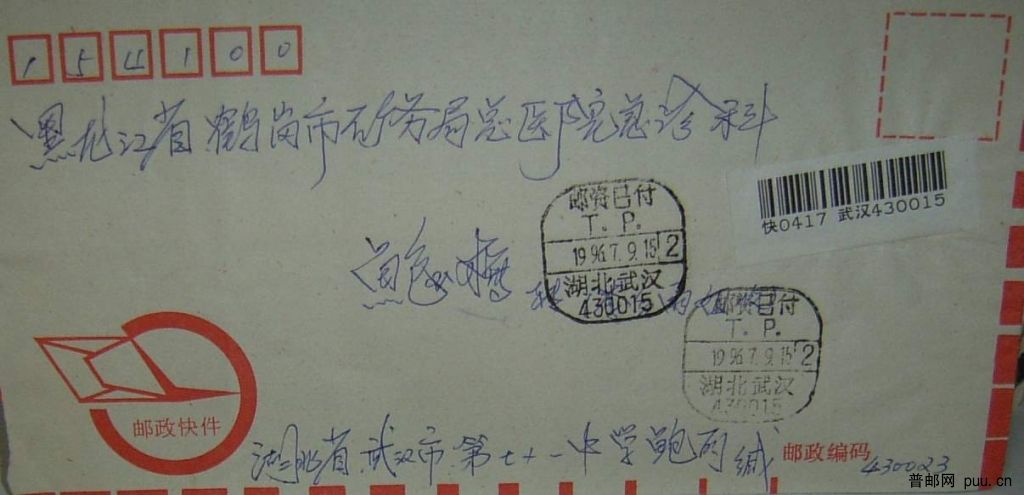 154100
黑龙江省鹤岗市矿务局总医院急诊科
快0417 武汉430015
邮资已付
T. P.
1996.7.9.15 2
湖北武汉
430015
邮资已付
T. P.
1996.7.9.15 2
湖北武汉
430015
邮政快件
湖北省武汉市第七十一中学鲍 缄
邮政编码 430023
普邮网 puu.cn